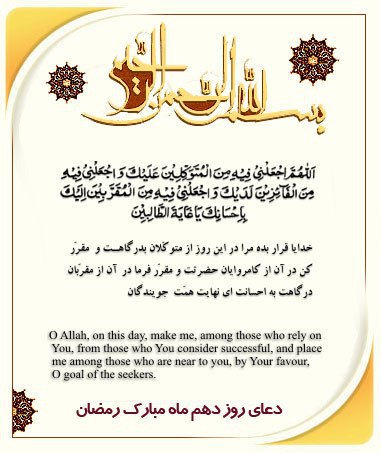 بسم الله الرحمن الرحیم
اَللّٰهُمَّ اجْعَلْنِیْ فِیْهِ مِنَ الْمُتَوَکِّلِیْنَ عَلَیْكَ وَ اجْعَلْنِیْ فِیْهِ
مِنَ الْفَائِزِیْنَ لَدَیْكَ وَ اجْعَلْنِیْ فِیْهِ مِنَ الْمُقَرَّبِیْنَ اِلَیْكَ
بِاِحْسَانِكَ یَا غَایَةَ الطَّالِبِیْنَ
خدایا قرار بده مرا در این روز از متوکلان بدرگاهت و مقرّر
کن در آن از کامروایان حضرتت و مقرّر فرما در آن از مقرّبان
درگاهت به احسانت ای نهایت همّت جویندگان
O Allah, on this day, make me, among those who rely on
You, from those who You consider successful, and place
me among those who are near to you, by Your favour,
O goal of the seekers.
دعای روز دهم ماه مبارک رمضان